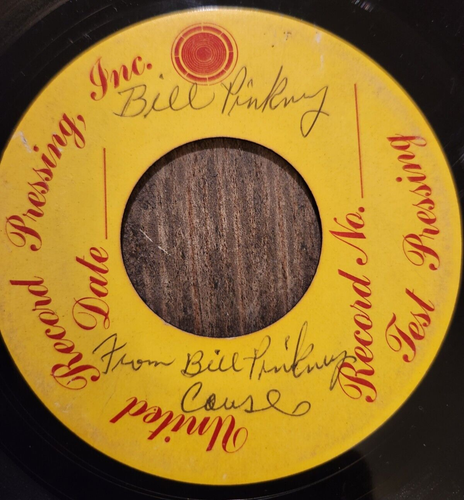 United Record Pressing, Inc.
Bill Pinkny
Date
Record No.
Test Pressing
From Bill Pinknys
Couse